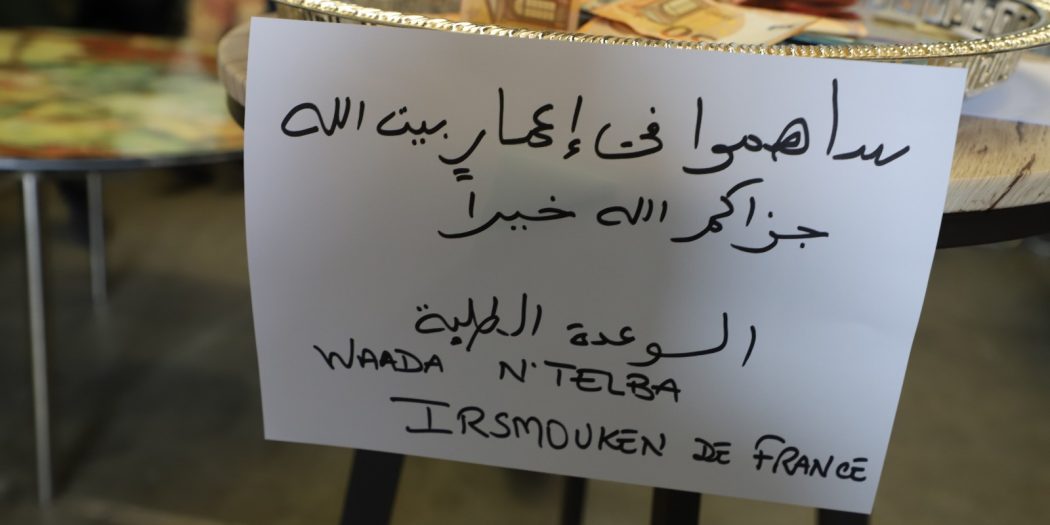 ساهموا في إعمار بيت الله
جزاكم الله خيرا
الوعدة الطلبة
WAADA N'TELBA
IRSMOUKEN DE FRANCE